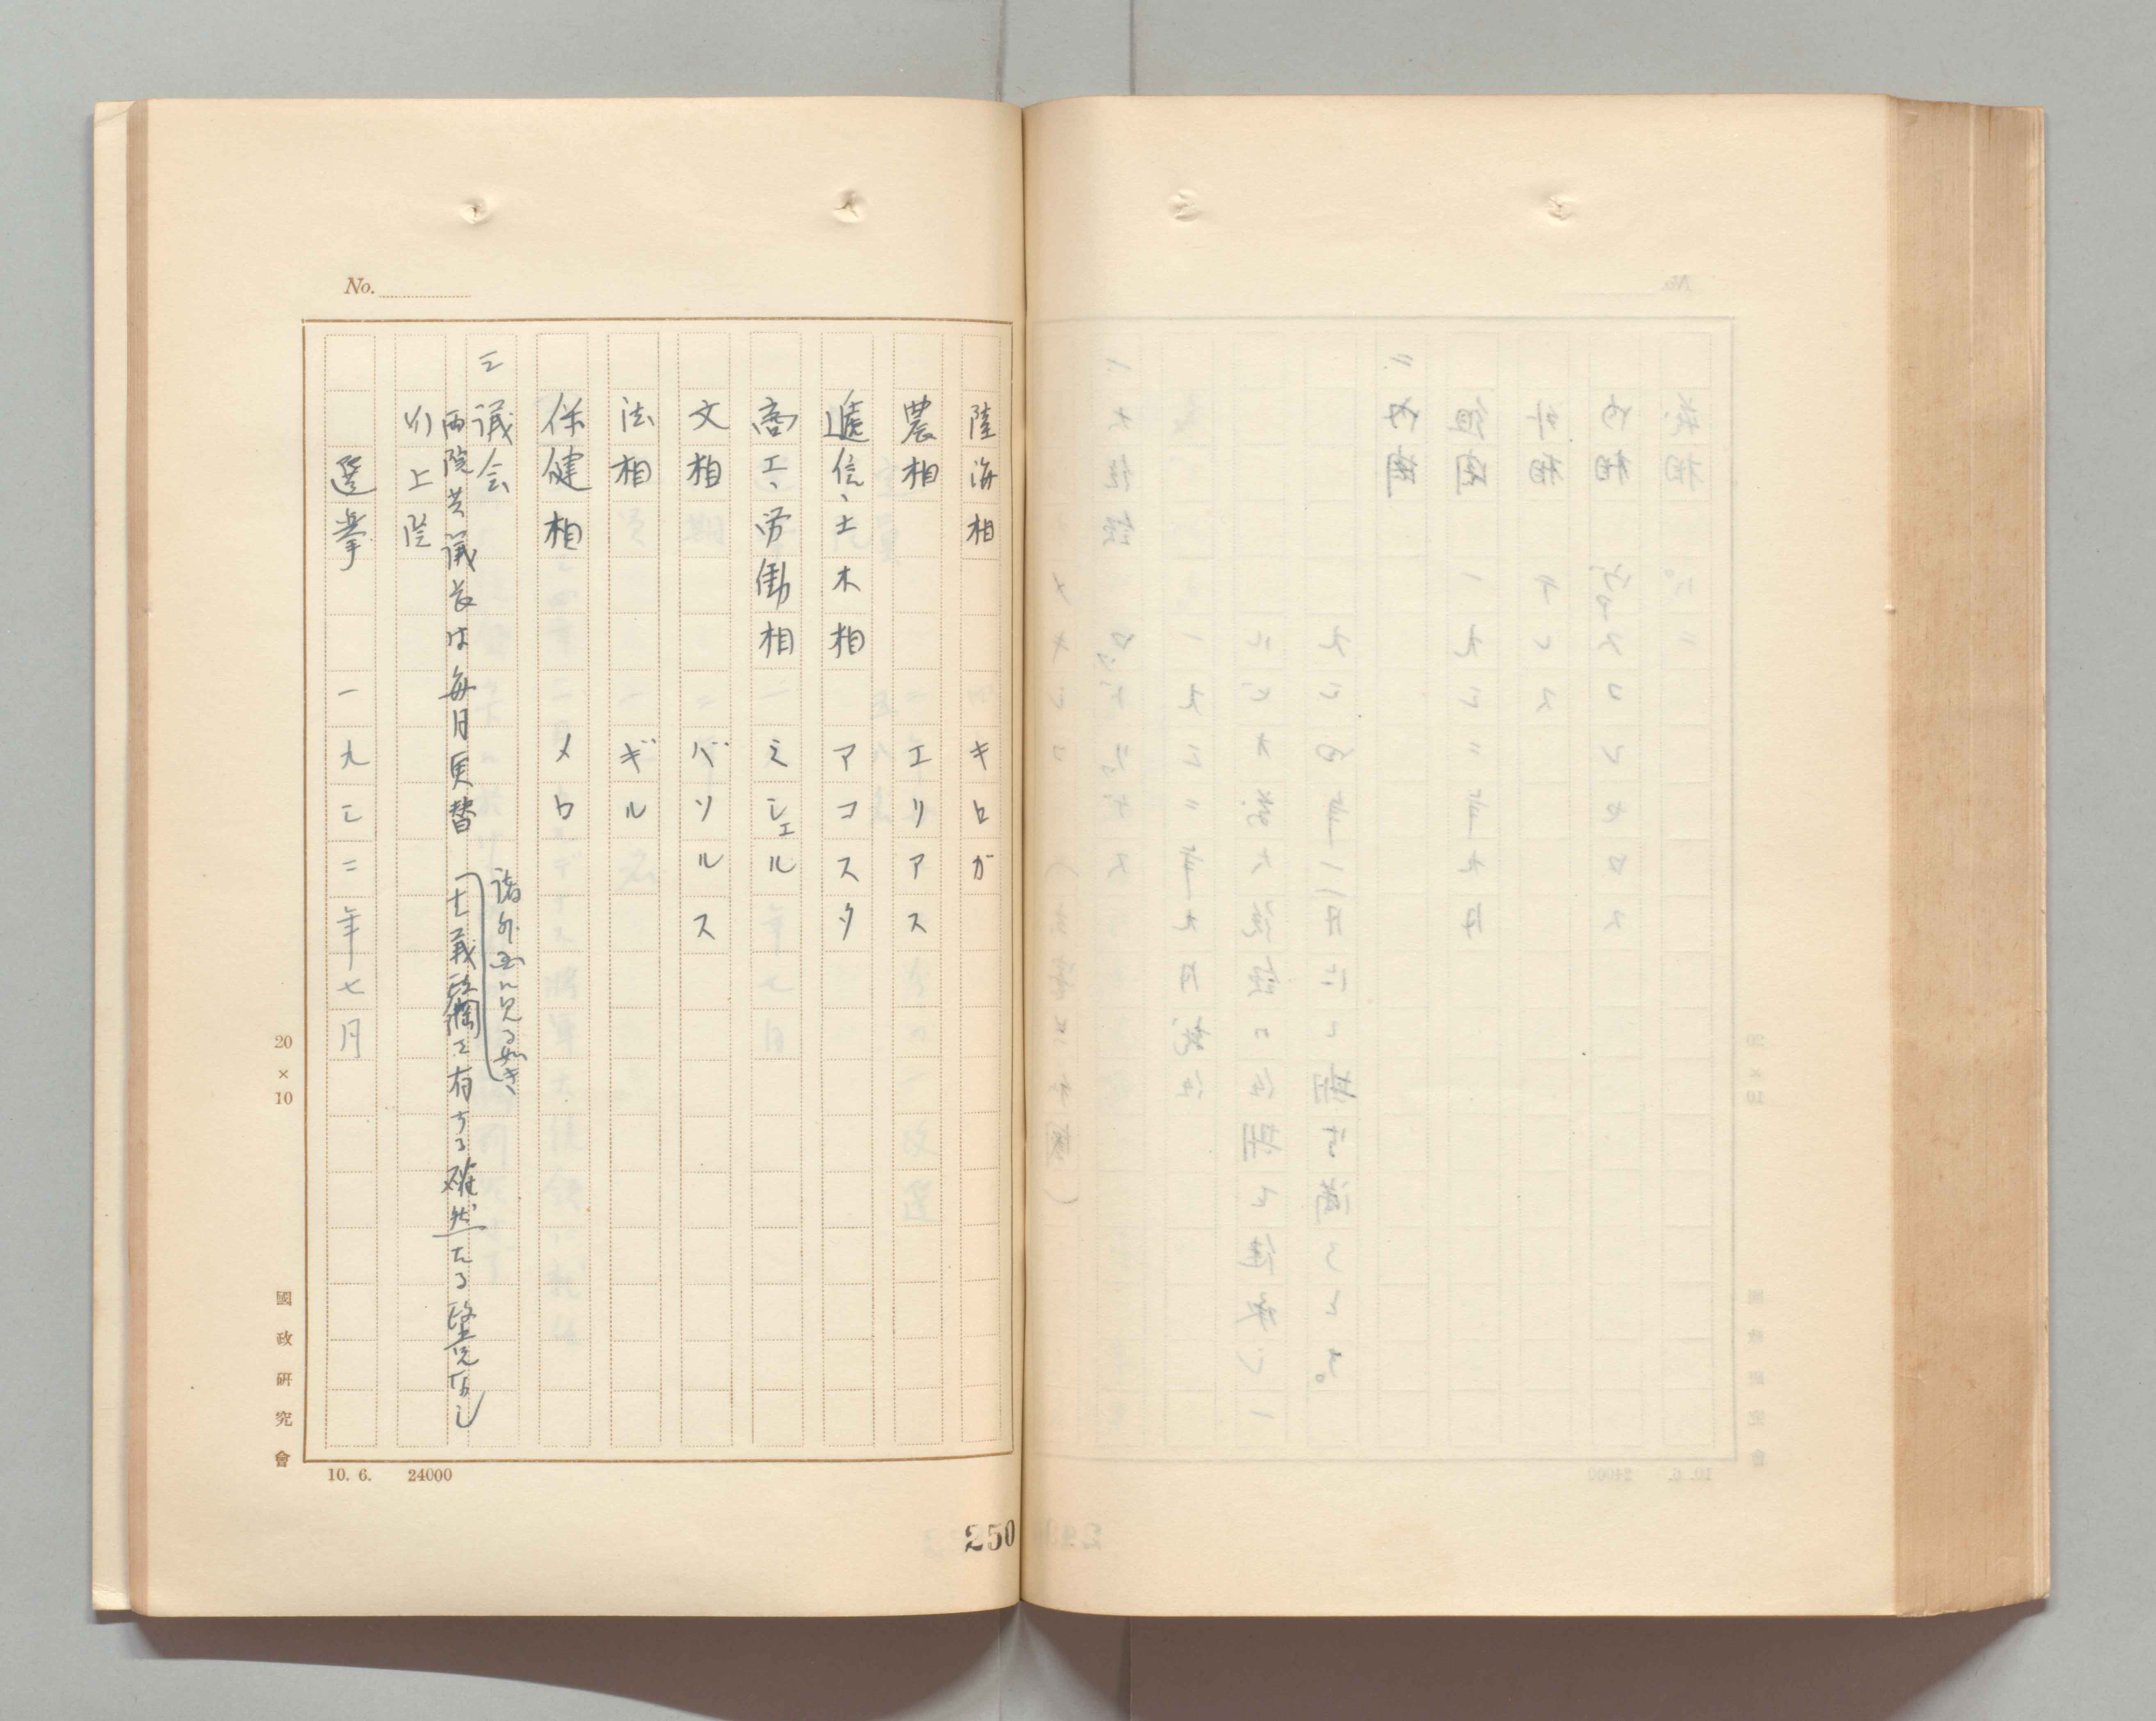 No.
陸海相 キロガ
農相 エリアス
逓信、土木相 アコスタ
商工、労働相 ミシェル
文相 バソルス
法相 ギル
保健相 メロ
三 議会
両院共議長は毎月更替
諸外国に見る如き
主義政綱を有する確然たる政党なし
(1) 上院
選挙 一九三二年七月
20×10
國政研究會
10. 6. 24000
250